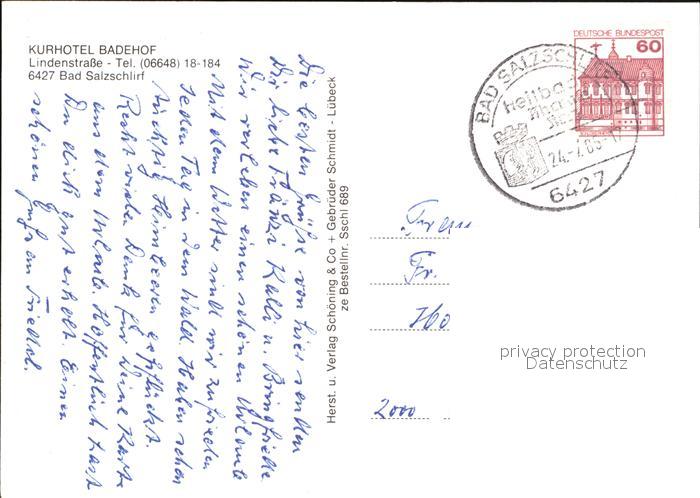 KURHOTEL BADEHOF
Lindenstraße - Tel. (06648) 18-184
6427 Bad Salzschlirf
DEUTSCHE BUNDESPOST
60
BAD SALZSCHLIRF
Heilbad
24.-7.85-17
6427
Die besten Grüße von hier senden
Dir liebe Fränzi Kalli u. Friedle
Wir verleben einen schönen Urlaub
Mit dem Wetter sind wir zufrieden
Jeden Tag in dem Wald. Haben schon
tüchtig Himbeeren gepflückt.
Recht vielen Dank für Deine Karte
aus dem Urlaub. Hoffentlich hast
Du dich gut erholt. Einen
schönen Gruß an Friedel.
Herst. u. Verlag Schöning & Co + Gebrüder Schmidt - Lübeck
ze Bestellnr. Sschl 689
Fr.
2000
privacy protection
Datenschutz